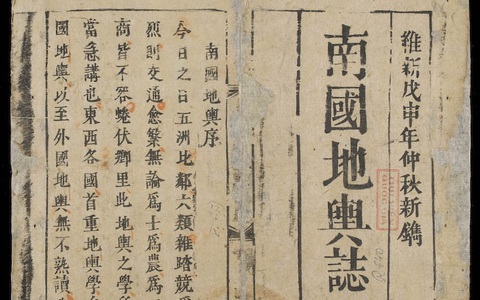 維新戊申年仲秋新鐫
南國地輿誌
南國地輿序
今日之日五洲比鄰六類雜踏競
烈則交通愈繁無論爲士爲農爲
商皆不容蜷伏鄉里此地輿之學所
當急講也東西各國首重地輿學
國地輿以至外國地輿無不熟讀